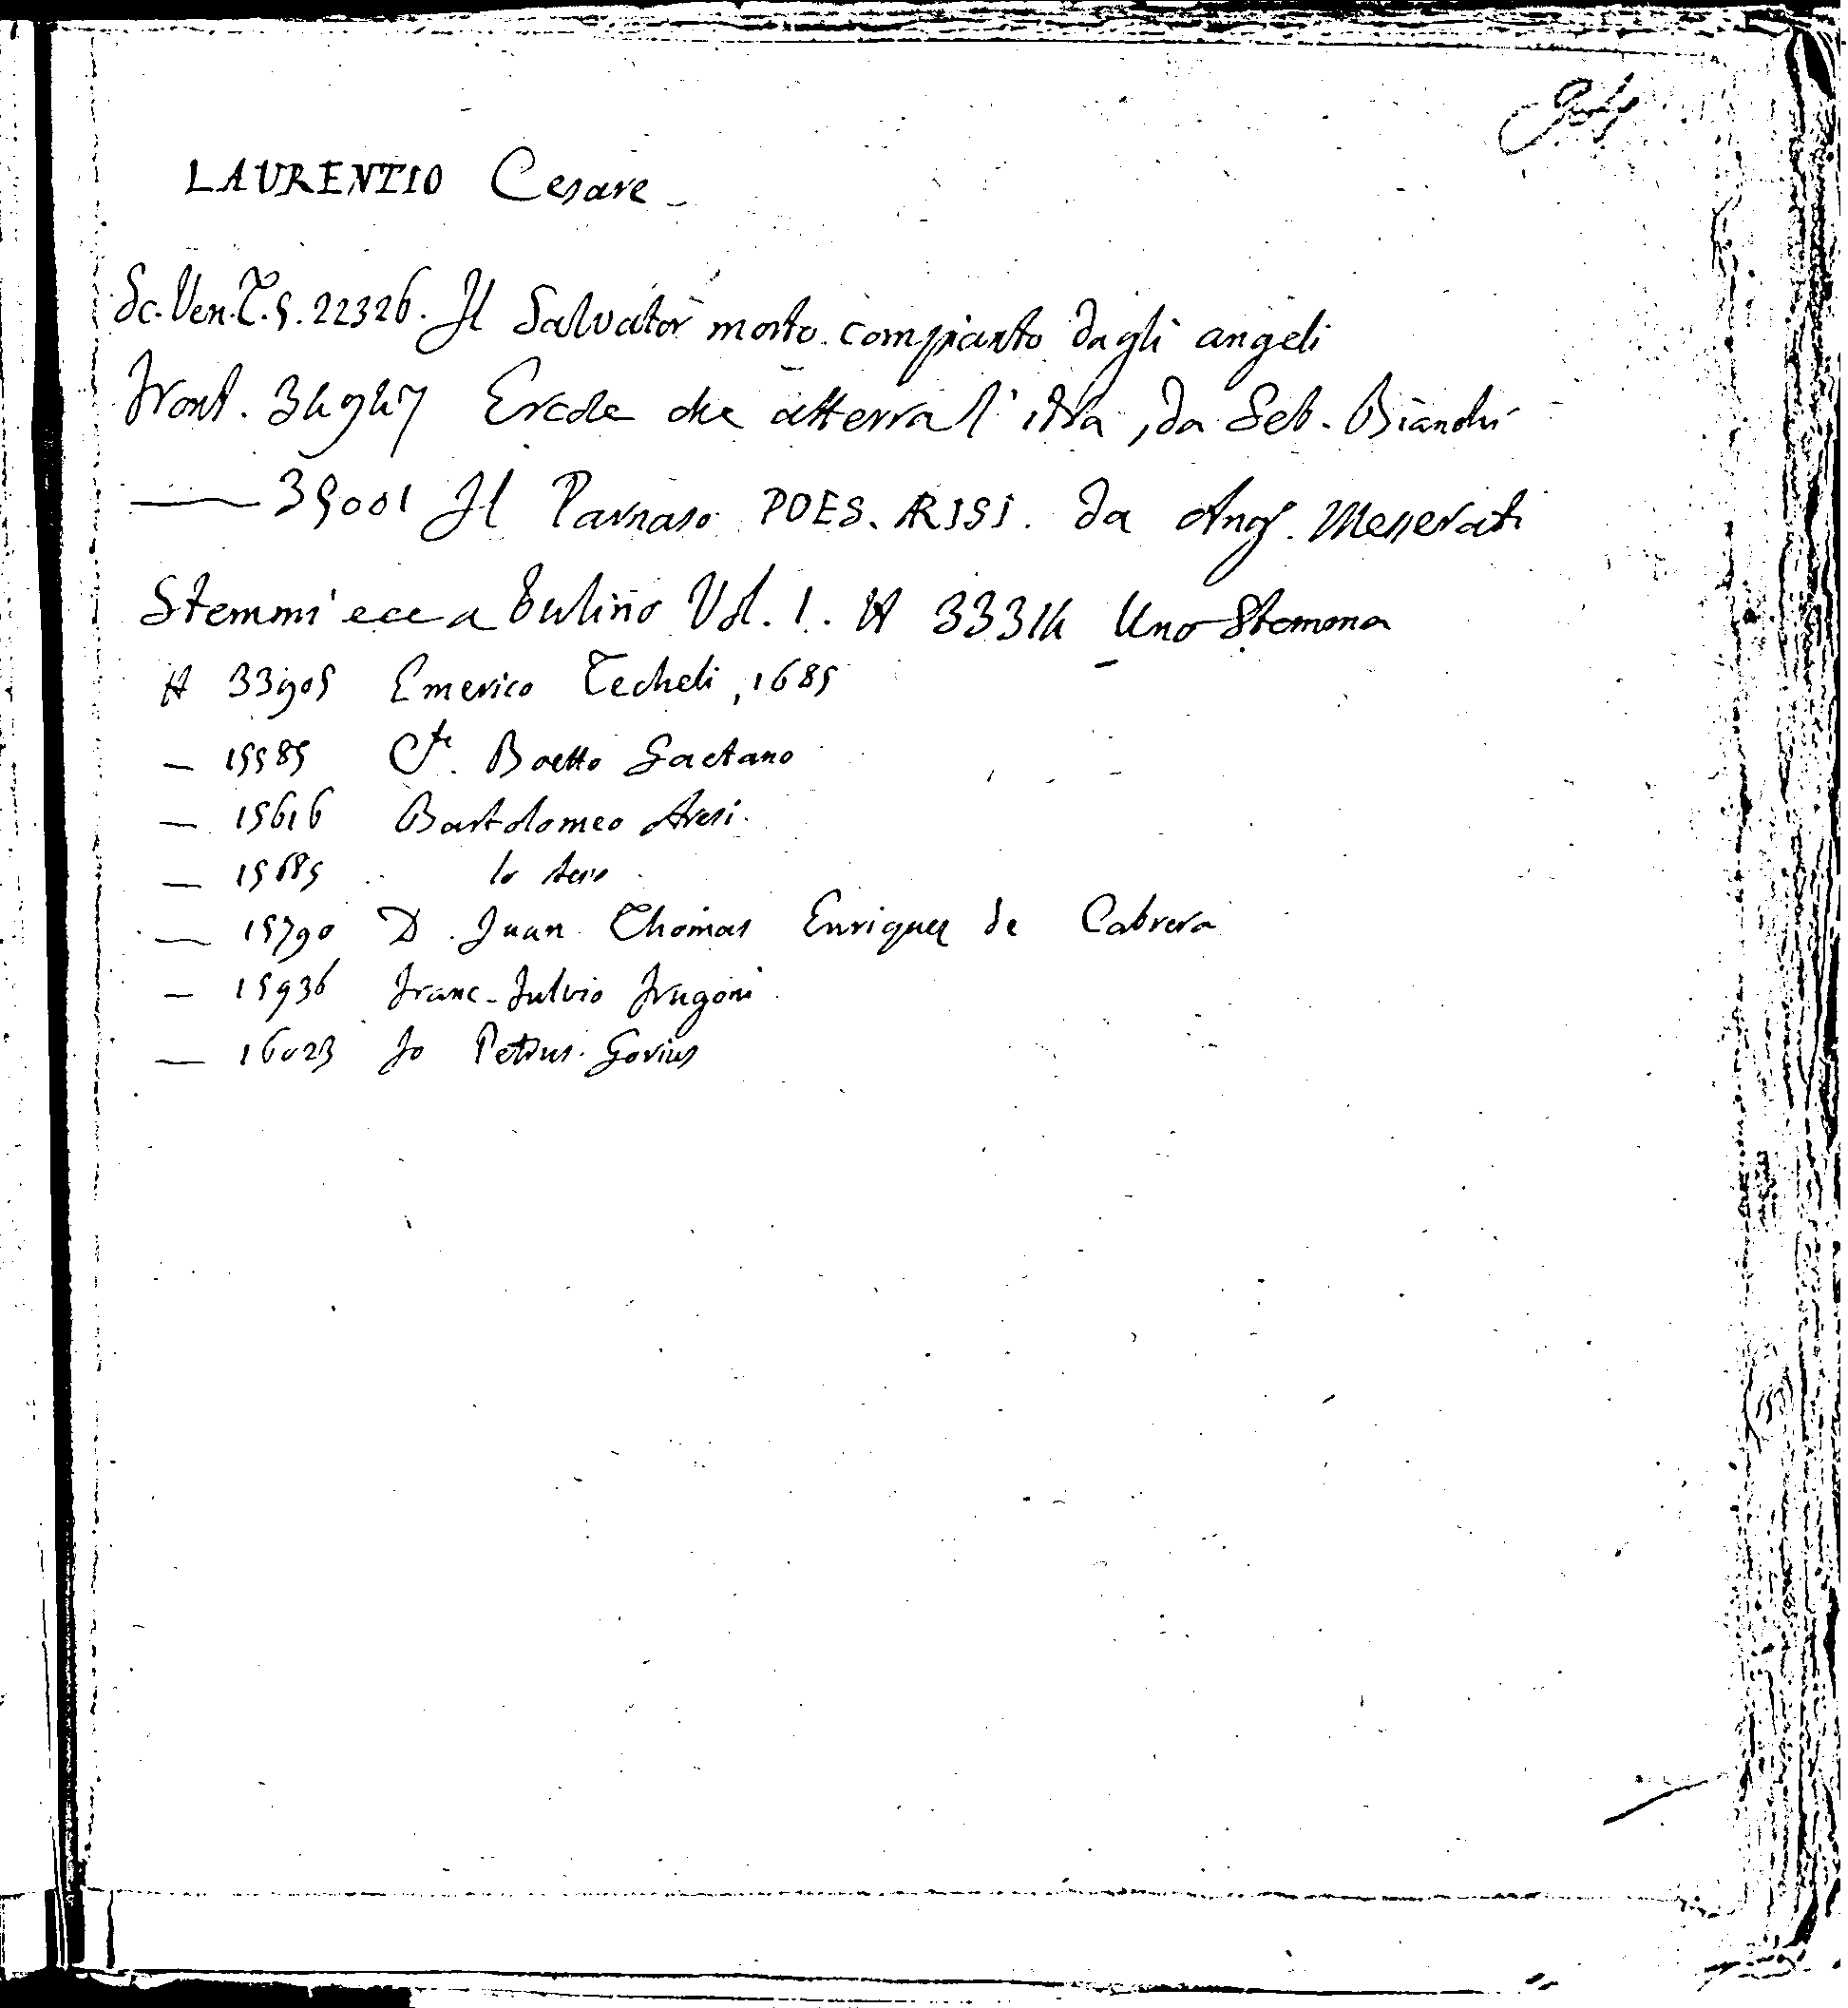 LAURENTIO Cesare
Sc. Ven. T. 5. 22326. Il Salvator morto compianto dagli angeli
Front. 34947 Ercole che atterra l'idra, da Seb. Bianchi
— 35001 Il Parnaso POES. ARISI. da Ang. Messerati
Stemmi ecc a bulino Vol. 1. H 33314 Uno Stemma
H 33905 Emerico Techeli, 1685
— 15585 Cte. Boetto Gaetano
— 15616 Bartolomeo Aresi.
— 15685 lo stesso
— 15790 D. Juan Thomas Enriquez de Cabrera
— 15936 Franc. Fulvio Frugoni
— 16023 Jo Petrus Gorius